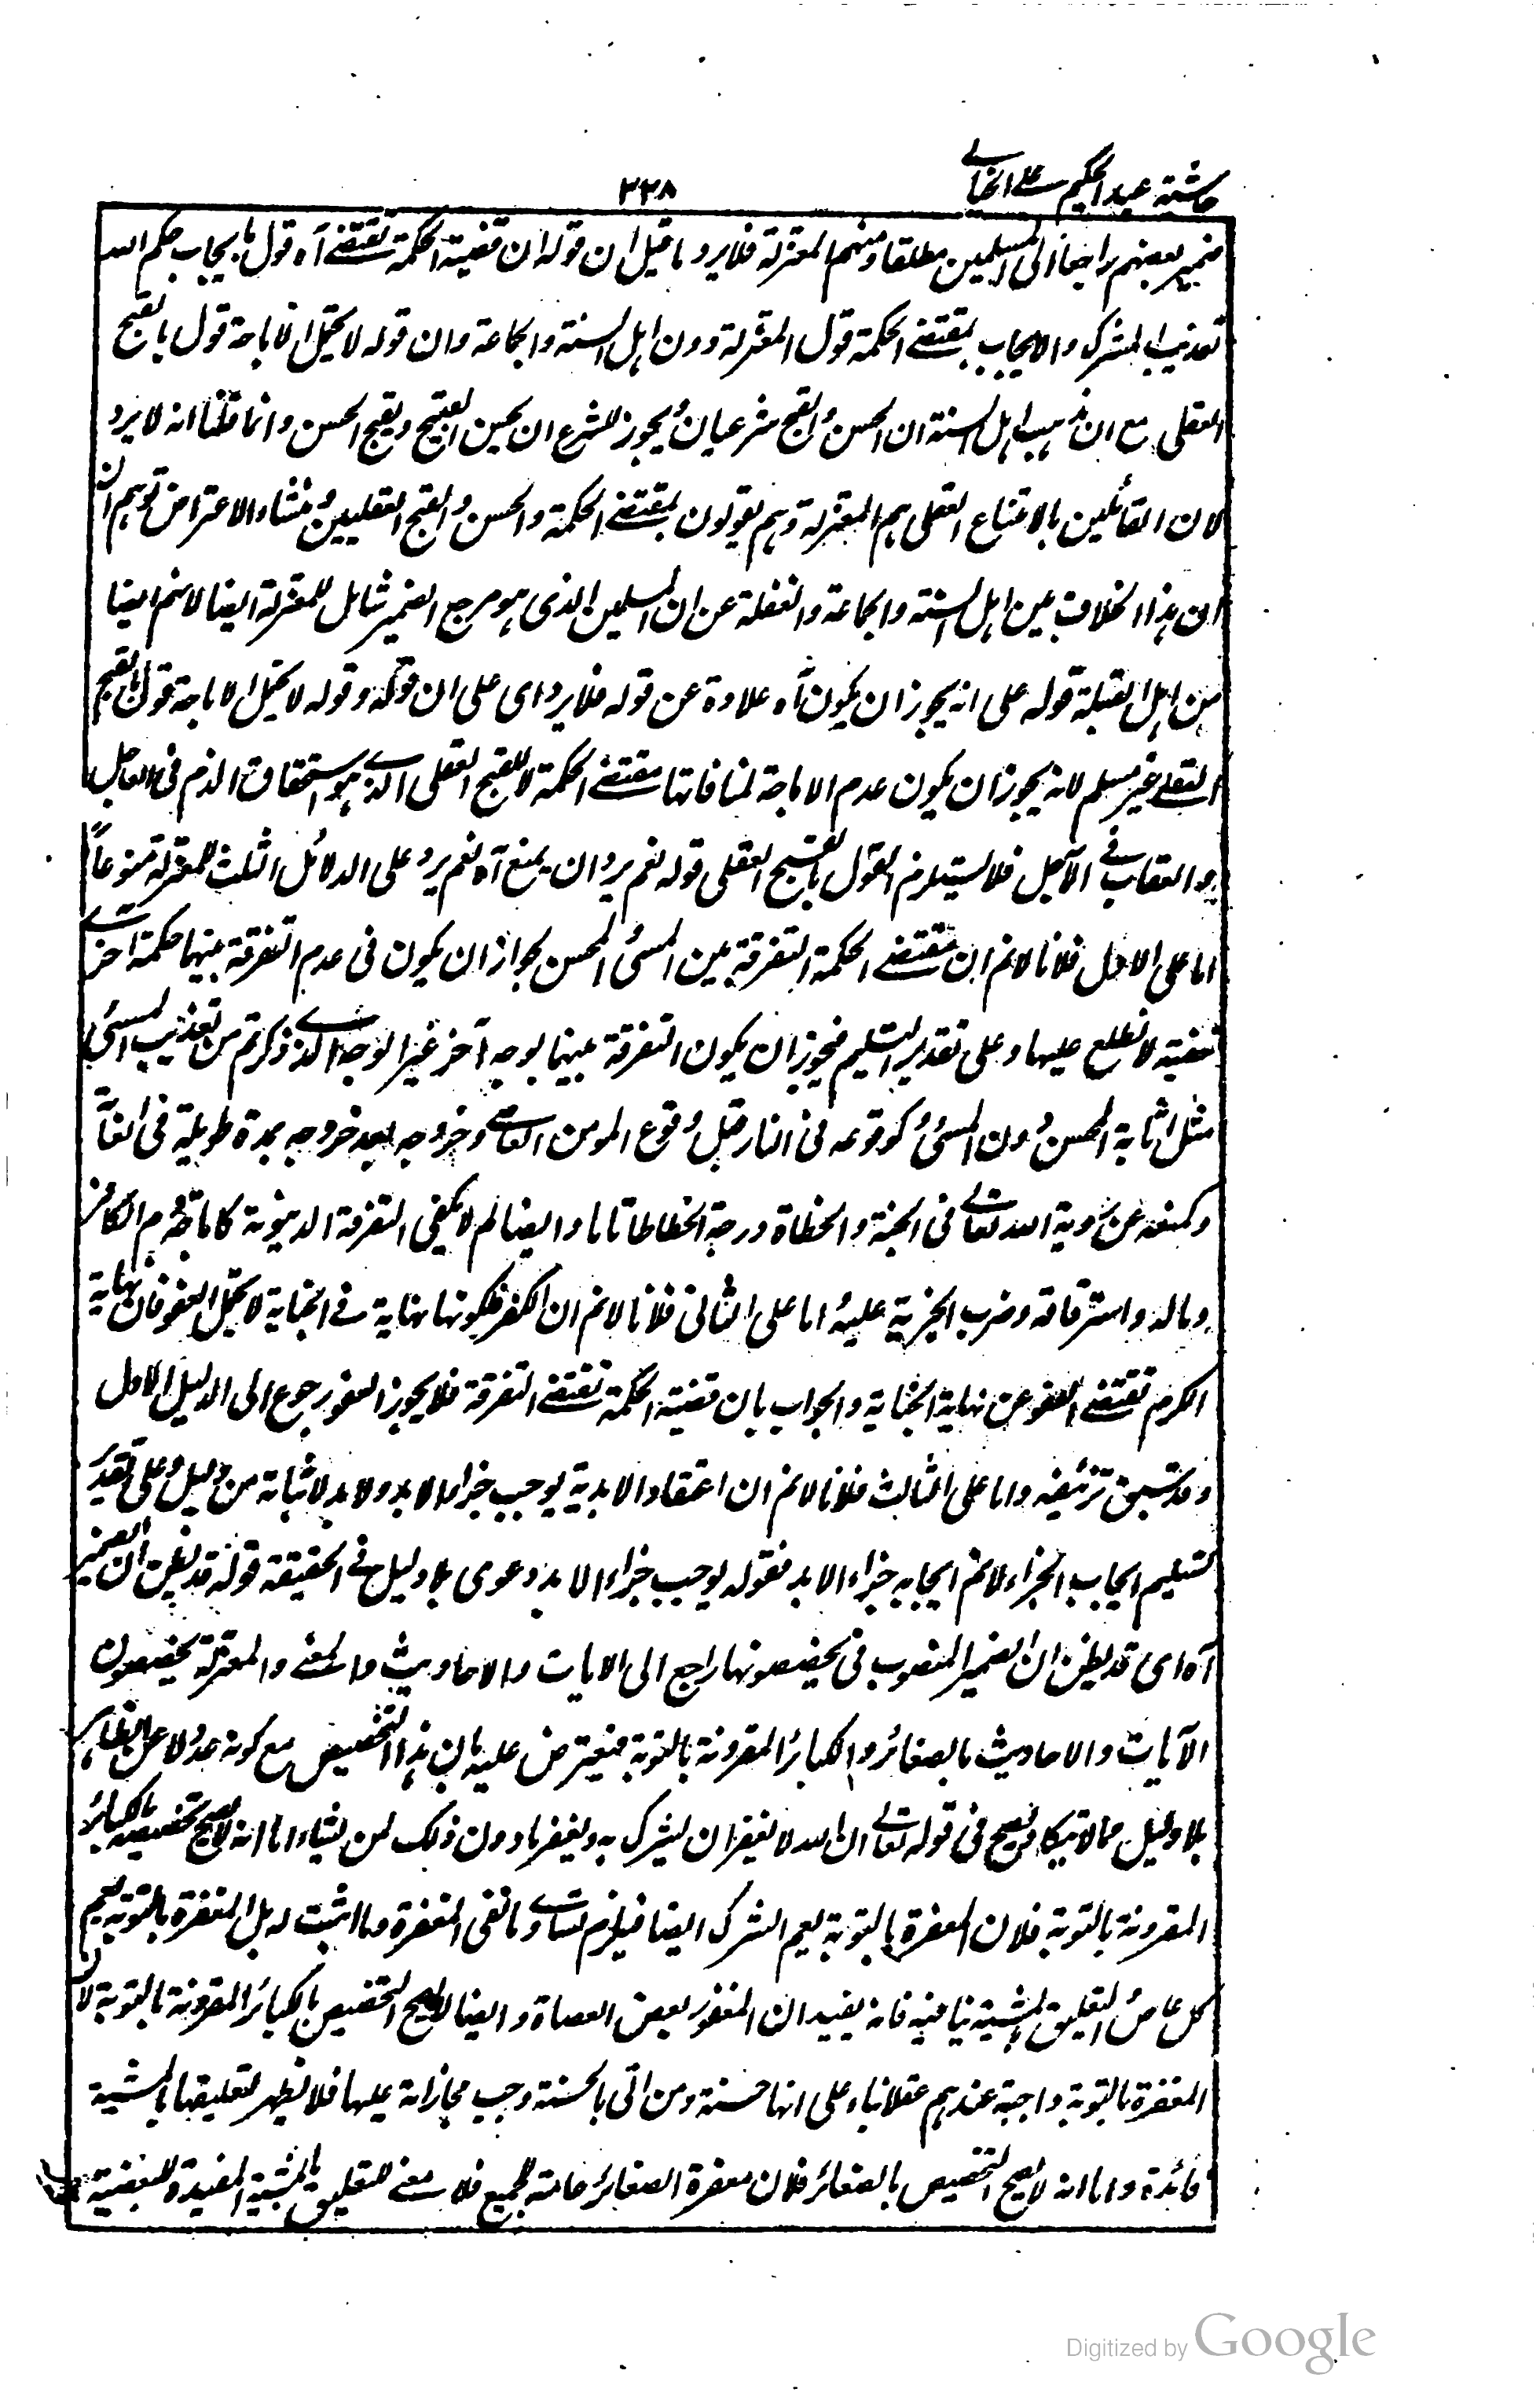 حاشية عبد الحكيم على الخيالى
٣٣٨
ضمير بعضهم راجعا الى المسلمين مطلقا ومنهم المعتزلة فلا يرد ما قيل ان قوله ان قضية الحكمة تقتضى آه قول بايجاب حكم الله
تعذيب المشرك والايجاب بمقتضى الحكمة قول المعتزلة دون اهل السنة والجماعة وان قوله لا يحتمل الاباحة قول بالقبح
العقلى مع ان مذهب اهل السنة ان الحسن والقبح شرعيان ويجوز للشرع ان يحسن القبيح ويقبح الحسن وانما قلنا انه لا يرد
لان القائلين بالامتناع العقلى هم المعتزلة وهم يقولون بمقتضى الحكمة والحسن والقبح العقليين ومنشاء الاعتراض توهم ان
ان هذا الخلاف بين اهل السنة والجماعة والغفلة عن ان المسلمين الذى هو مرجع الضمير شامل للمعتزلة ايضا لانهم ايضا
من اهل القبلة قوله على انه يجوز ان يكون آه علاوة عن قوله فلا يرد اى على ان قوله وقوله لا يحتمل الاباحة قول بالقبح
العقلى غير مسلم لانه يجوز ان يكون عدم الاباحة لمنافاتها مقتضى الحكمة لا للقبح العقلى الذى هو استحقاق الذم فى العاجل
والعقاب فى الآجل فلا يستلزم القول بالقبح العقلى قوله نعم يرد ان يمنع آه نعم يرد على الدلائل الثلث للمعتزلة منوعا
اما على الاول فلانا لانم ان مقتضى الحكمة التفرقة بين المسئ المحسن لجواز ان يكون فى عدم التفرقة بينهما حكمة اخرى
خفية لا نطلع عليها وعلى تقدير التسليم فيجوز ان يكون التفرقة بينهما بوجه آخر غير الوجه الذى ذكرتم من تعذيب المسئ
مثل اثابة المحسن دون المسئ كوقوعه فى النار قبل وقوع المومن العاصى وخروجه بعد خروجه بمدة طويلة فى الغاية
وكمنعه عن روية الله تعالى فى الجنة والحطاة درجة انحطاطا تاما وايضا لم لا يكفى التفرقة الدنيوية كاباحة دم الكافر
وماله واسترقاقه وضرب الجزية عليه اما على الثانى فلانا لانم ان الكفر لكونها نهاية فى الجناية لا يحتمل العفو فان نهاية
الكرم تقتضى العفو عن نهاية الجناية والجواب بان قضية الحكمة تقتضى التفرقة فلا يجوز العفو رجوع الى الدليل الاول
وقد سبق تزئيفه واما على الثالث فلانا لانم ان اعتقاد الابدية يوجب جزاء الابد ولا بد لاثباته من دليل وعلى تقدير
تسليم ايجاب الجزاء لانم ايجابه جزاء الابد فقوله يوجب جزاء الابد دعوى بلا دليل فى الحقيقة قوله قد يظن ان الضمير
آه اى قد يظن ان الضمير المنصوب فى يخصصونها راجع الى الايات والاحاديث والمعنى والمعتزلة يخصصون
الآيات والاحاديث بالصغائر والكبائر المقرونة بالتوبة فيعترض عليه بان هذا التخصيص مع كونه عدولا عن الظاهر
بلا دليل مما لا يكاد يصح فى قوله تعالى ان الله لا يغفر ان يشرك به ويغفر ما دون ذلك لمن يشاء اما انه لا يصح تخصيصه بالكبائر
المقرونة بالتوبة فلان المغفرة بالتوبة يعم الشرك ايضا فيلزم تساوى ما نفى المغفرة وما اثبت له بل المغفرة بالتوبة يعم
كل عاص والتعليق بالمشية ينافيه فانه يفيد ان المغفور بعض العصاة وايضا لا يصح التخصيص بالكبائر المقرونة بالتوبة لان
المغفرة بالتوبة واجبة عندهم عقلا بناء على انها حسنة ومن اتى بالحسنة وجب مجازاته عليها فلا يظهر لتعليقها بالمشية
فائدة واما انه لا يصح التخصيص بالصغائر فلان مغفرة الصغائر عامة للجميع فلا معنى للتعليق بالمشية المفيدة للبعضية
Digitized by Google